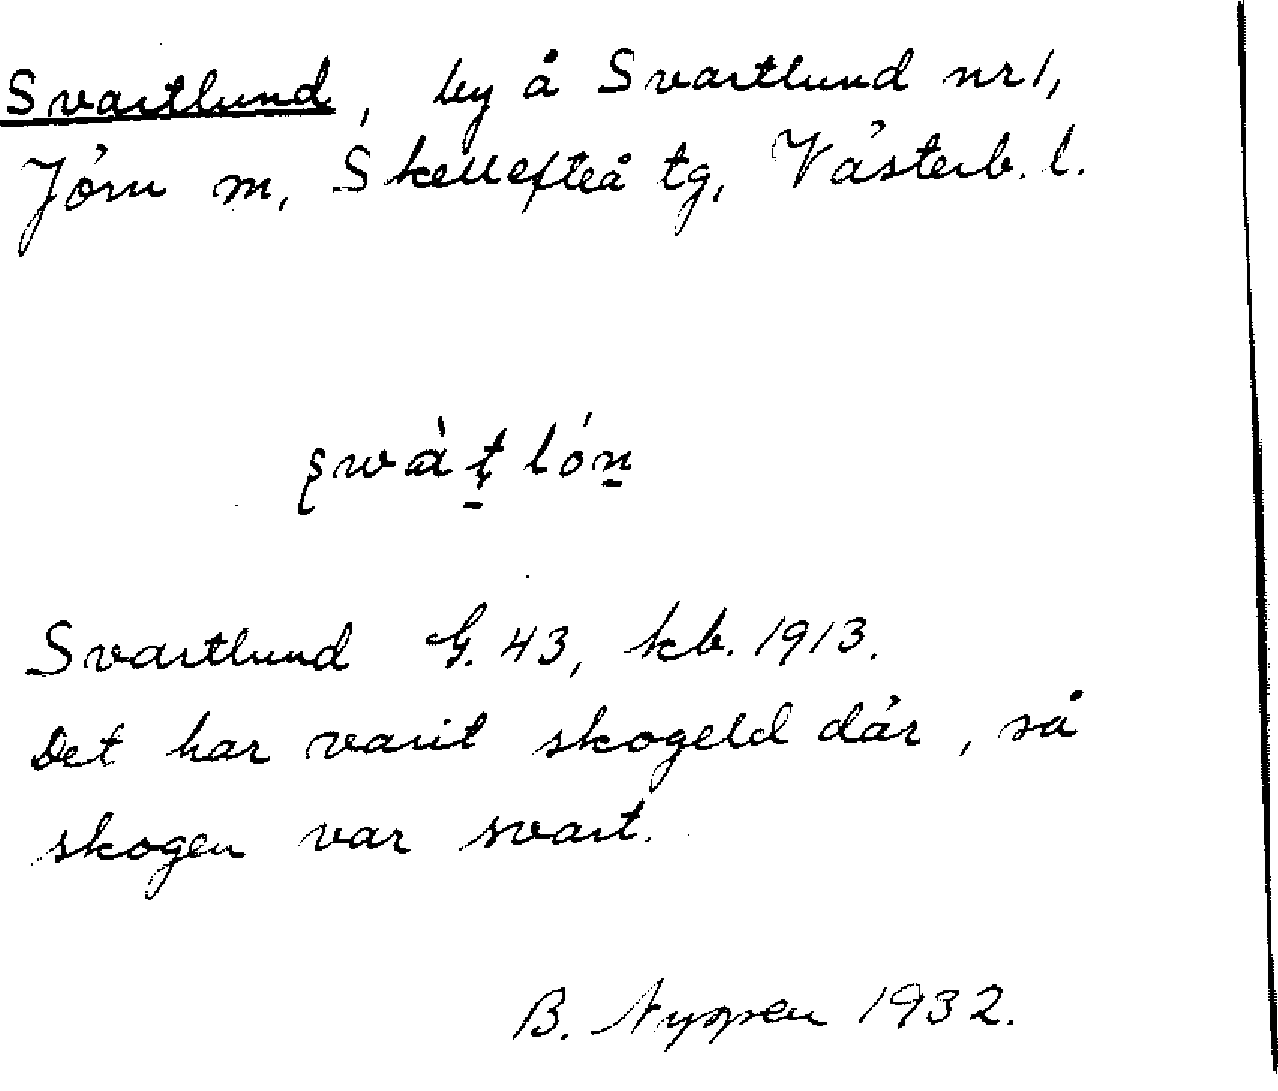 Svartlund, by å Svartlund nr 1,
Jörn m, Skellefteå tg, Västerb. l.
Svartlund G. 43, kb. 1913.
Det har varit skogeld där, så
skogen var svart.
B. 1932.